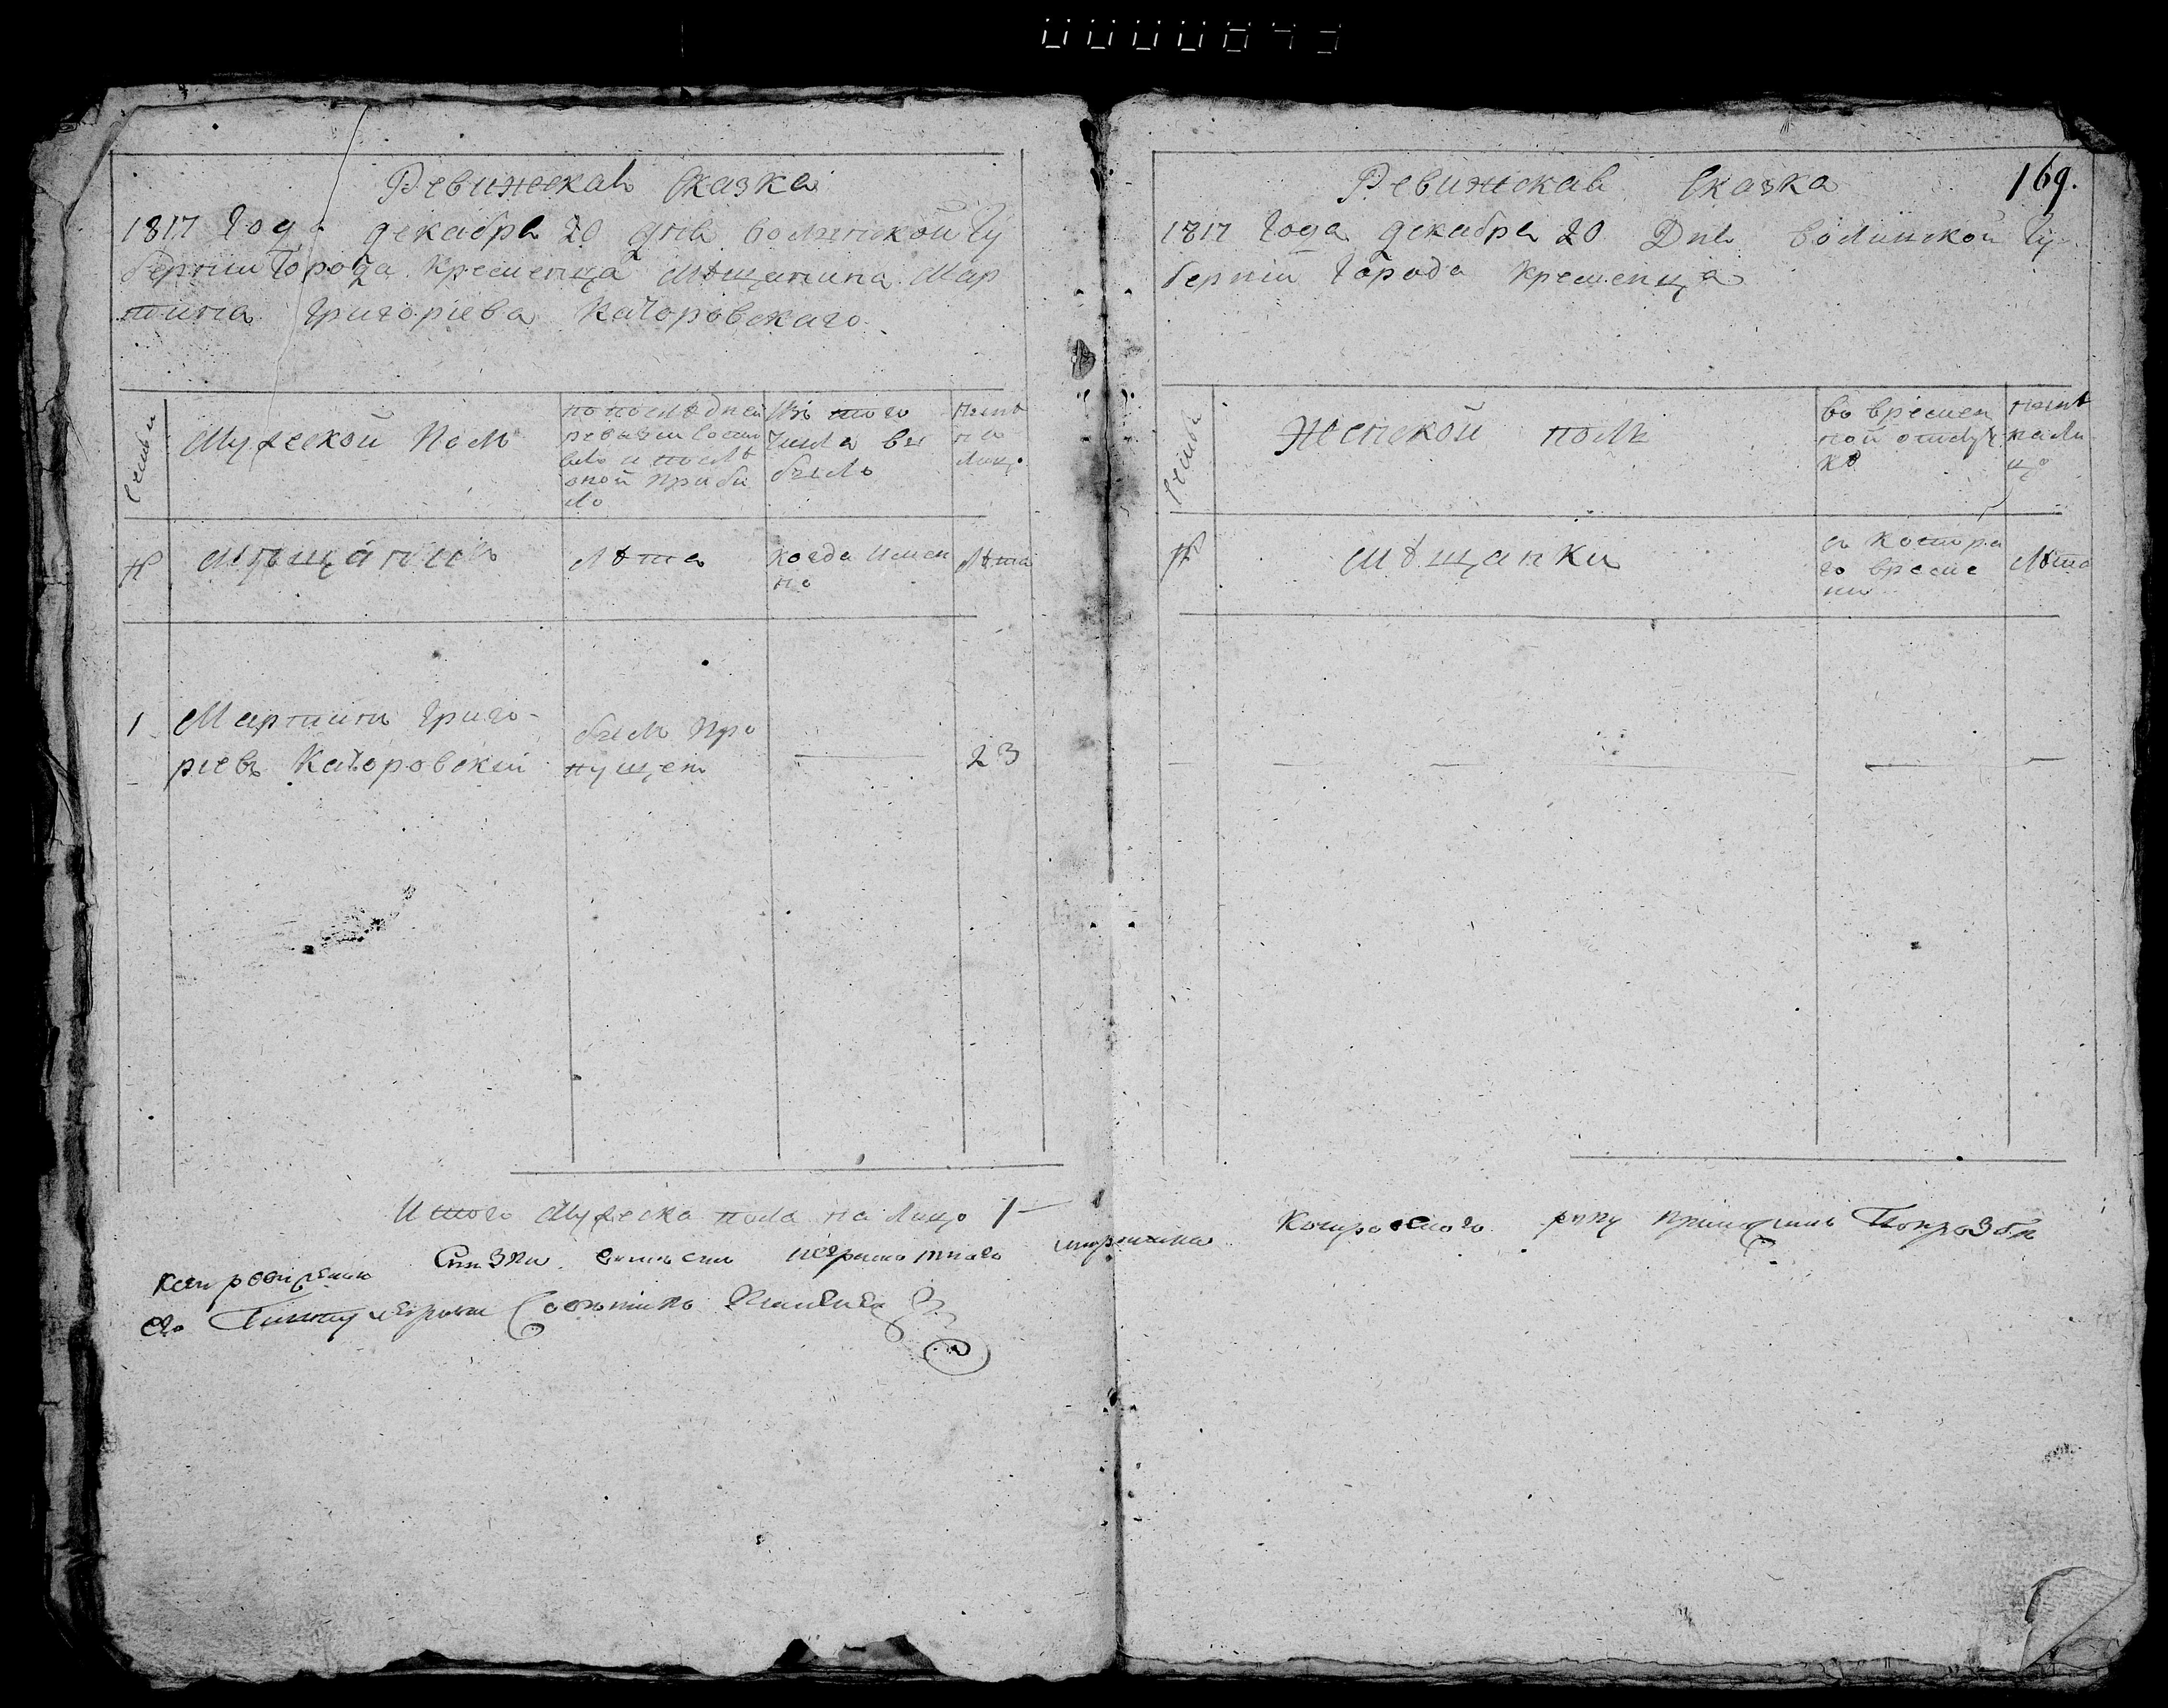 0000843
Ревижскав Сказка
1817 года декабря 20 Дня волинской Гу
берніи Города кременца мѣщанина Мар
тина Григоріева Качоровскаго
Семьи
Мужеской полъ
по последней
ревизіи состо
яло и послѣ
оной прибы
ло
Изъ того
числа вы
было
нынѣ
на
лицо
№
мѣщанинъ
лѣта
когда имен
но
лѣта
1
Мартинъ Григо-
ріевъ Качоровскій
былъ про
пущен
23
Итого Мужеска пола на лицо 1
Сказки неграмотного
его
169.
Ревижская Сказка
1817 Года декабря 20 Дня волинской Гу-
берній Города кременца
Семьи
Женской полъ
во времен
ной отлуч
кѣ
нынѣ
на ли
цо
№
мѣщанки
съ котора
го време
ни
лѣта
мартина Качоровского руку по прозбе